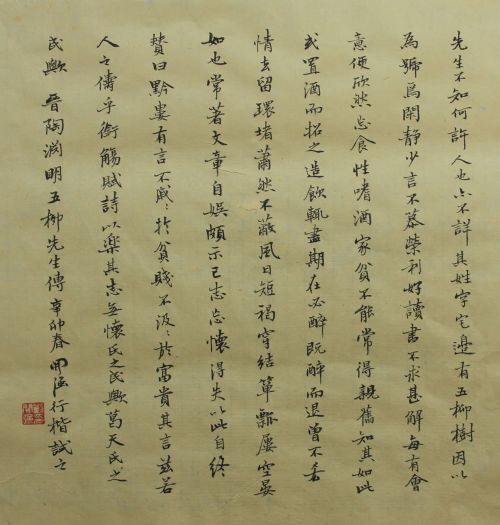 先生不知何許人也亦不詳其姓字宅邊有五柳樹因以
為號焉閑靜少言不慕榮利好讀書不求甚解每有會
意便欣然忘食性嗜酒家貧不能常得親舊知其如此
或置酒而招之造飲輒盡期在必醉既醉而退曾不吝
情去留環堵蕭然不蔽風日短褐穿結簞瓢屢空晏
如也常著文章自娛頗示己志忘懷得失以此自終
贊曰黔婁有言不戚〻於貧賤不汲〻於富貴其言茲若
人之儔乎銜觴賦詩以樂其志無懷氏之民歟葛天氏之
民歟 晉陶淵明五柳先生傳 辛卯春 行楷試之